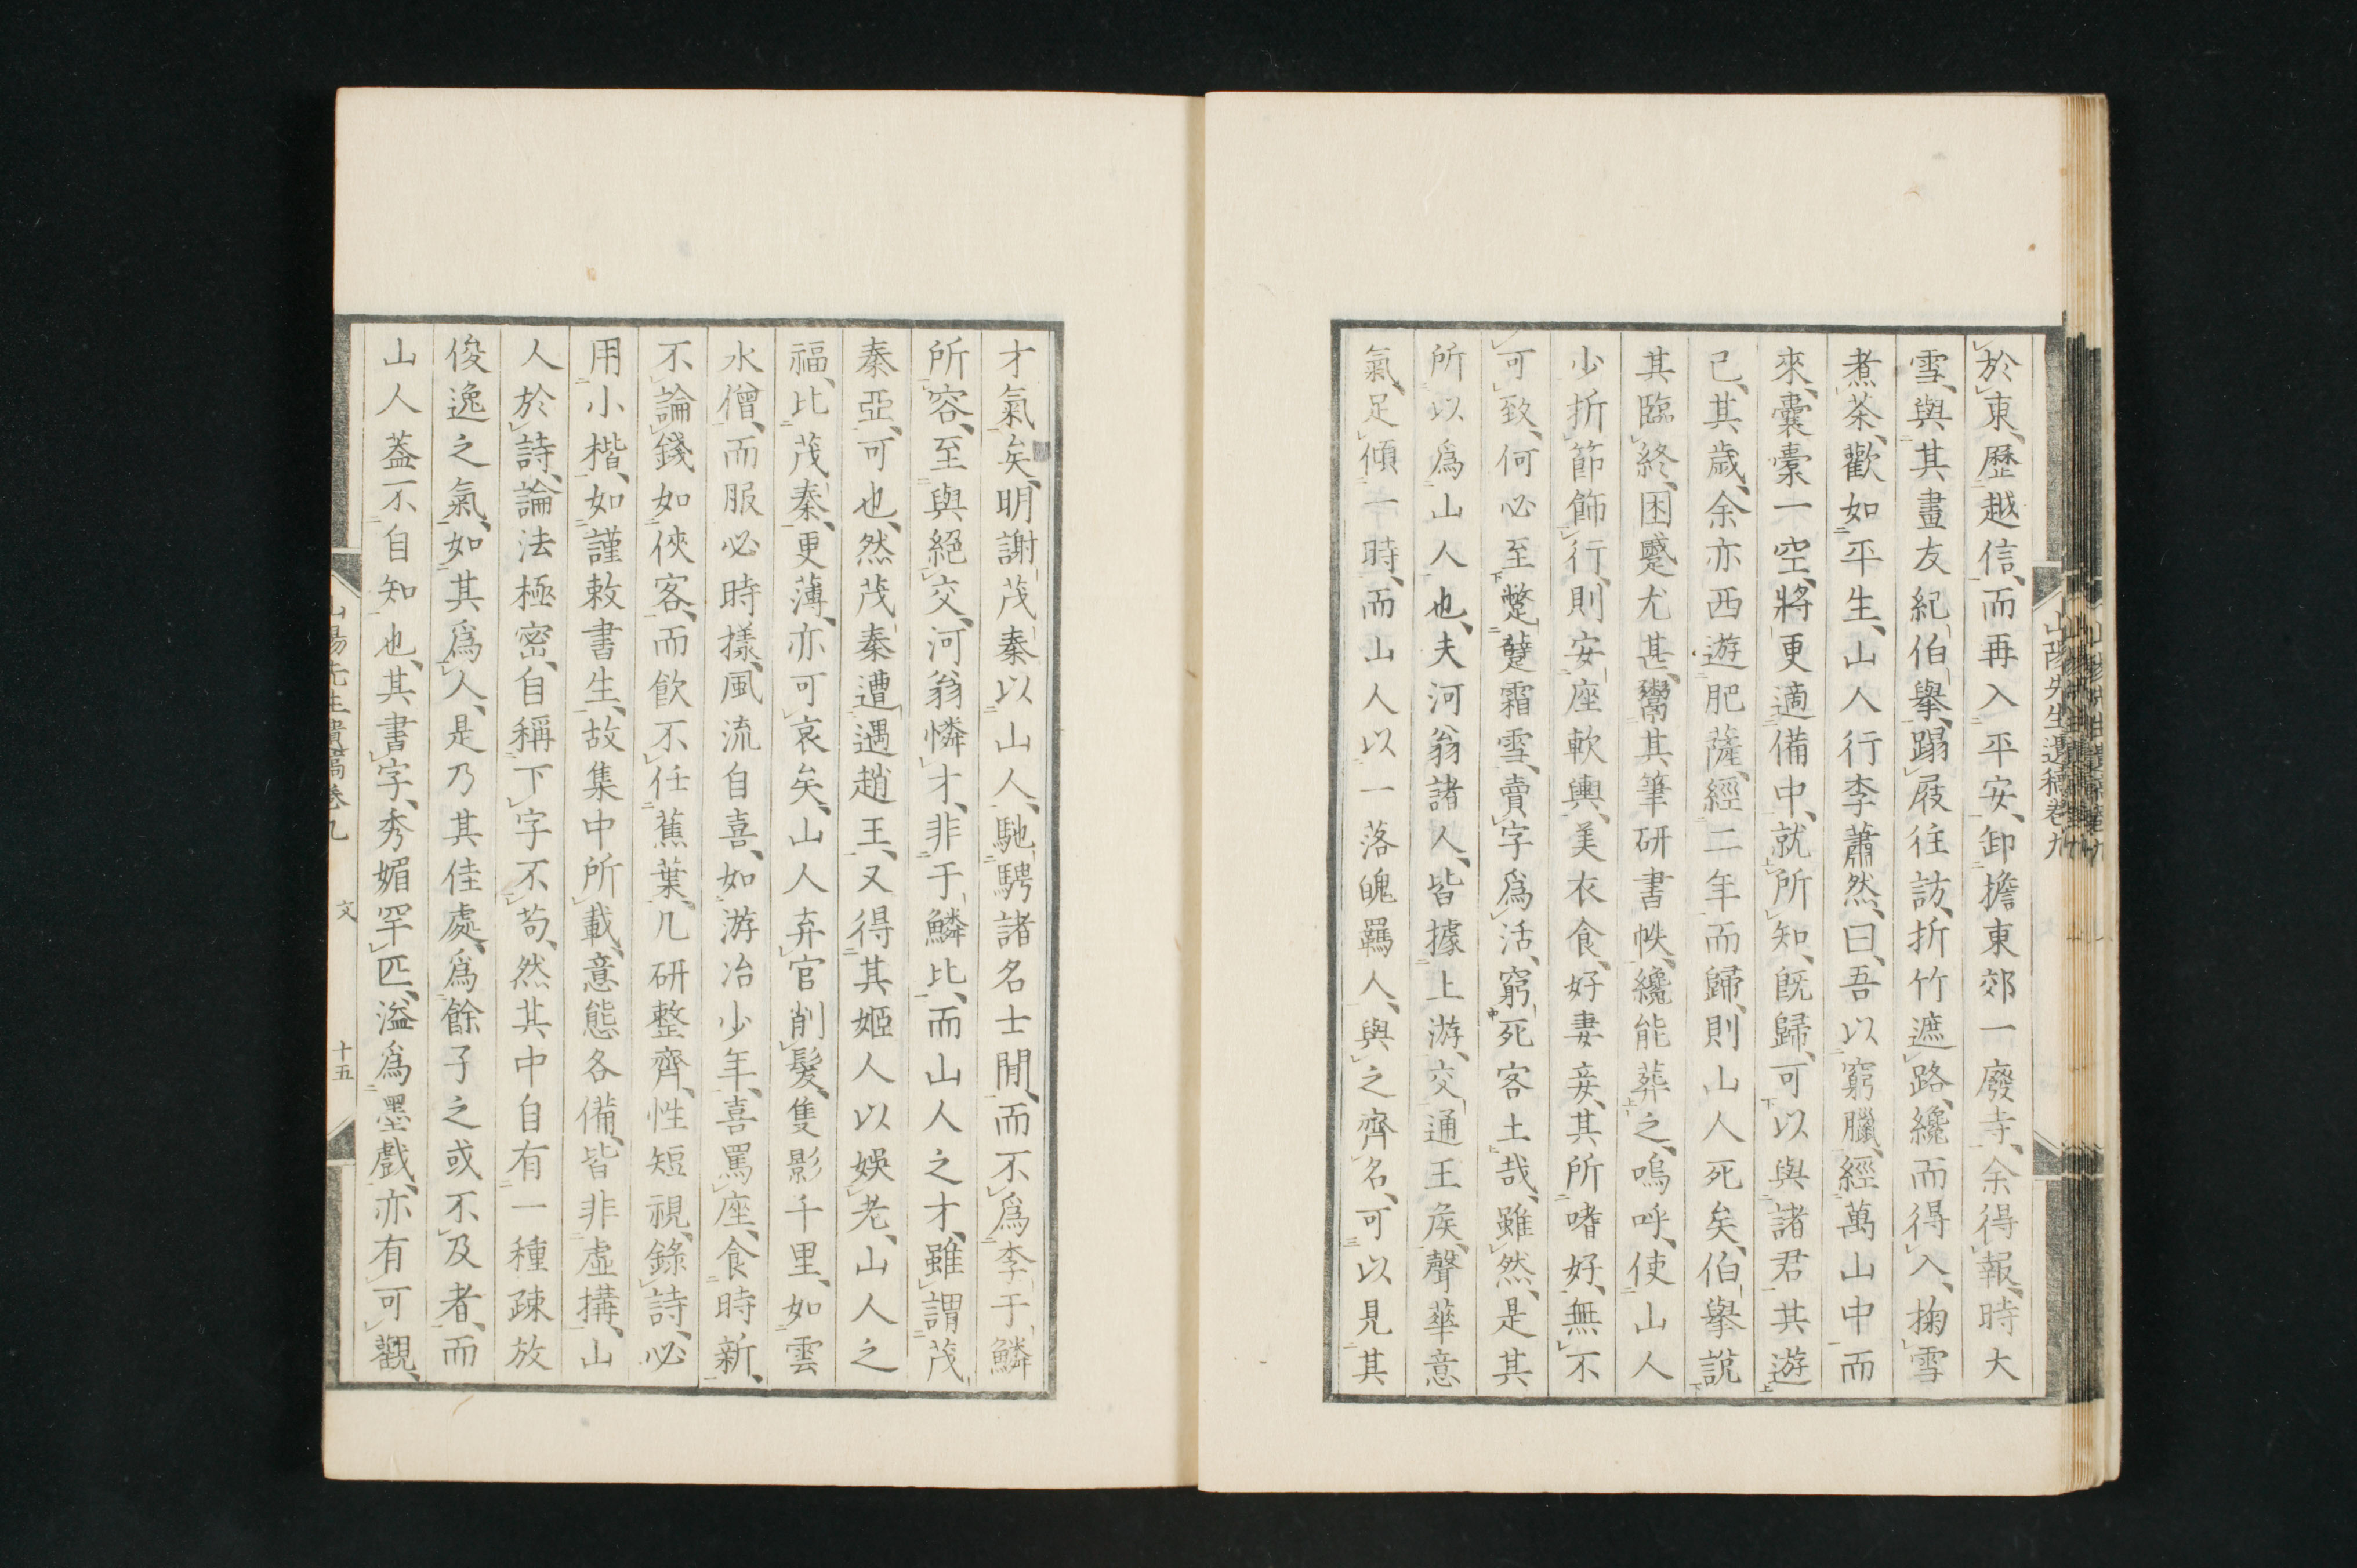 於東、歷越信、而再入平安、卸擔東郊一廢寺、余得報、時大
雪、與其畫友紀伯擧、蹋屐往訪、折竹遮路、纔而得入、掬雪
煮茶、歡如平生、山人行李蕭然、曰、吾以窮臘、經萬山中而
來、囊橐一空、將更適備中、就所知、既歸、可以與諸君其遊
已、其歲、余亦西遊肥薩、經二年而歸、則山人死矣、伯擧說
其臨終、困蹙尤甚、鬻其筆研書帙、纔能葬之、嗚呼、使山人
少折節飾行、則安座軟輿、美衣食、好妻妾、其所嗜好、無不
可致、何必至蹩躠霜雪、賣字爲活、窮死客土哉、雖然、是其
所以爲山人也、夫河翁諸人、皆據上游、交通王矦、聲華意
氣、足傾一時、而山人以一落魄羈人、與之齊名、可以見其
山陽先生遺稿卷九
才氣矣、明謝茂秦以山人、馳騁諸名士閒、而不爲李于鱗
所容、至與絕交、河翁憐才、非于鱗比、而山人之才、雖謂茂
秦亞、可也、然茂秦遭遇趙王、又得其姬人以娛老、山人之
福、比茂秦、更薄、亦可哀矣、山人弃官削髮、隻影千里、如雲
水僧、而服必時樣、風流自喜、如游冶少年、喜罵座、食時新、
不論錢、如俠客、而飮不任蕉葉、几研整齊、性短視、錄詩、必
用小楷、如謹敕書生、故集中所載、意態各備、皆非虛搆、山
人於詩、論法極密、自稱下字不苟、然其中自有一種疎放
俊逸之氣、如其爲人、是乃其佳處、爲餘子之或不及者、而
山人葢不自知也、其書字、秀媚罕匹、溢爲墨戲、亦有可觀、
山陽先生遺稿卷九 文 十五